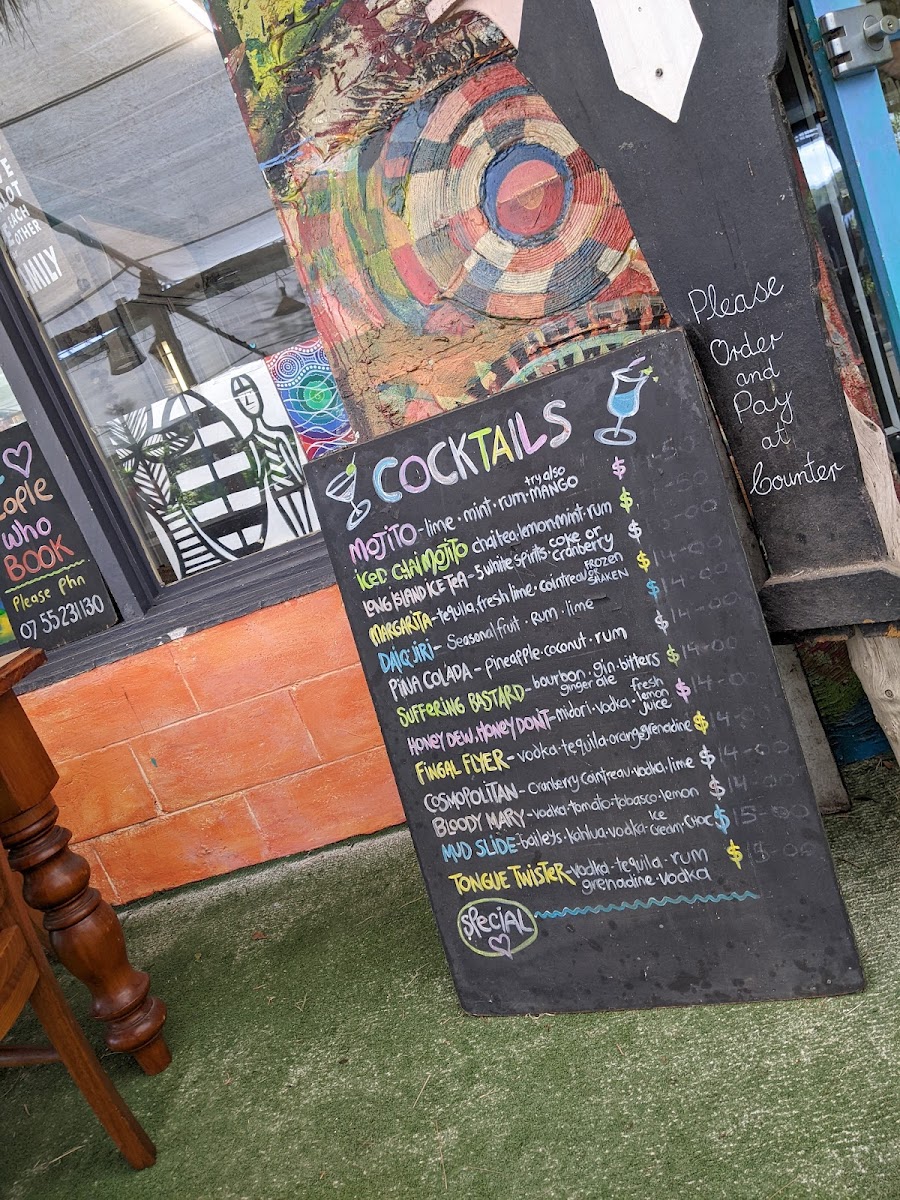 EACH
OTHER
People
Who
BOOK
Please Phn
07 55231130
Please
Order
and
Pay
at
Counter
COCKTAILS
MOJITO - lime · mint · rum · try also MANGO $
ICED CHAI MOJITO chai tea · lemon · mint · rum $
LONG ISLAND ICE TEA - 5 white spirits · coke or cranberry $
MARGARITA - tequila, fresh lime · cointreau FROZEN OR SHAKEN $ 14-00
DAIQ'JIRI - Seasonal fruit · rum · lime $ 14-00
PINA COLADA - pineapple · coconut · rum $ 14-00
SUFFERING BASTARD - bourbon · gin · bitters ginger ale $ 14-00
HONEY DEW, HONEY DONT - midori · vodka · fresh lemon juice $ 14-00
FINGAL FLYER - vodka · tequila · orange · grenadine $
COSMOPOLITAN - Cranberry · Cointreau · vodka · lime $ 14-00
BLOODY MARY - vodka · tomato · tobasco · lemon $ 14-00
MUD SLIDE - baileys · kahlua · vodka · ice cream · choc $ 15-00
TONGUE TWISTER - vodka · tequila · rum $
grenadine · vodka
SPECIAL